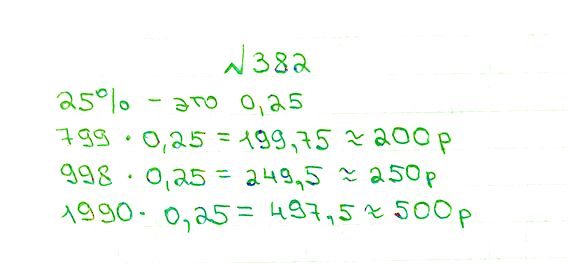 №382
25% - это 0,25
799 · 0,25 = 199,75 ≈ 200р
998 · 0,25 = 249,5 ≈ 250р
1990 · 0,25 = 497,5 ≈ 500р